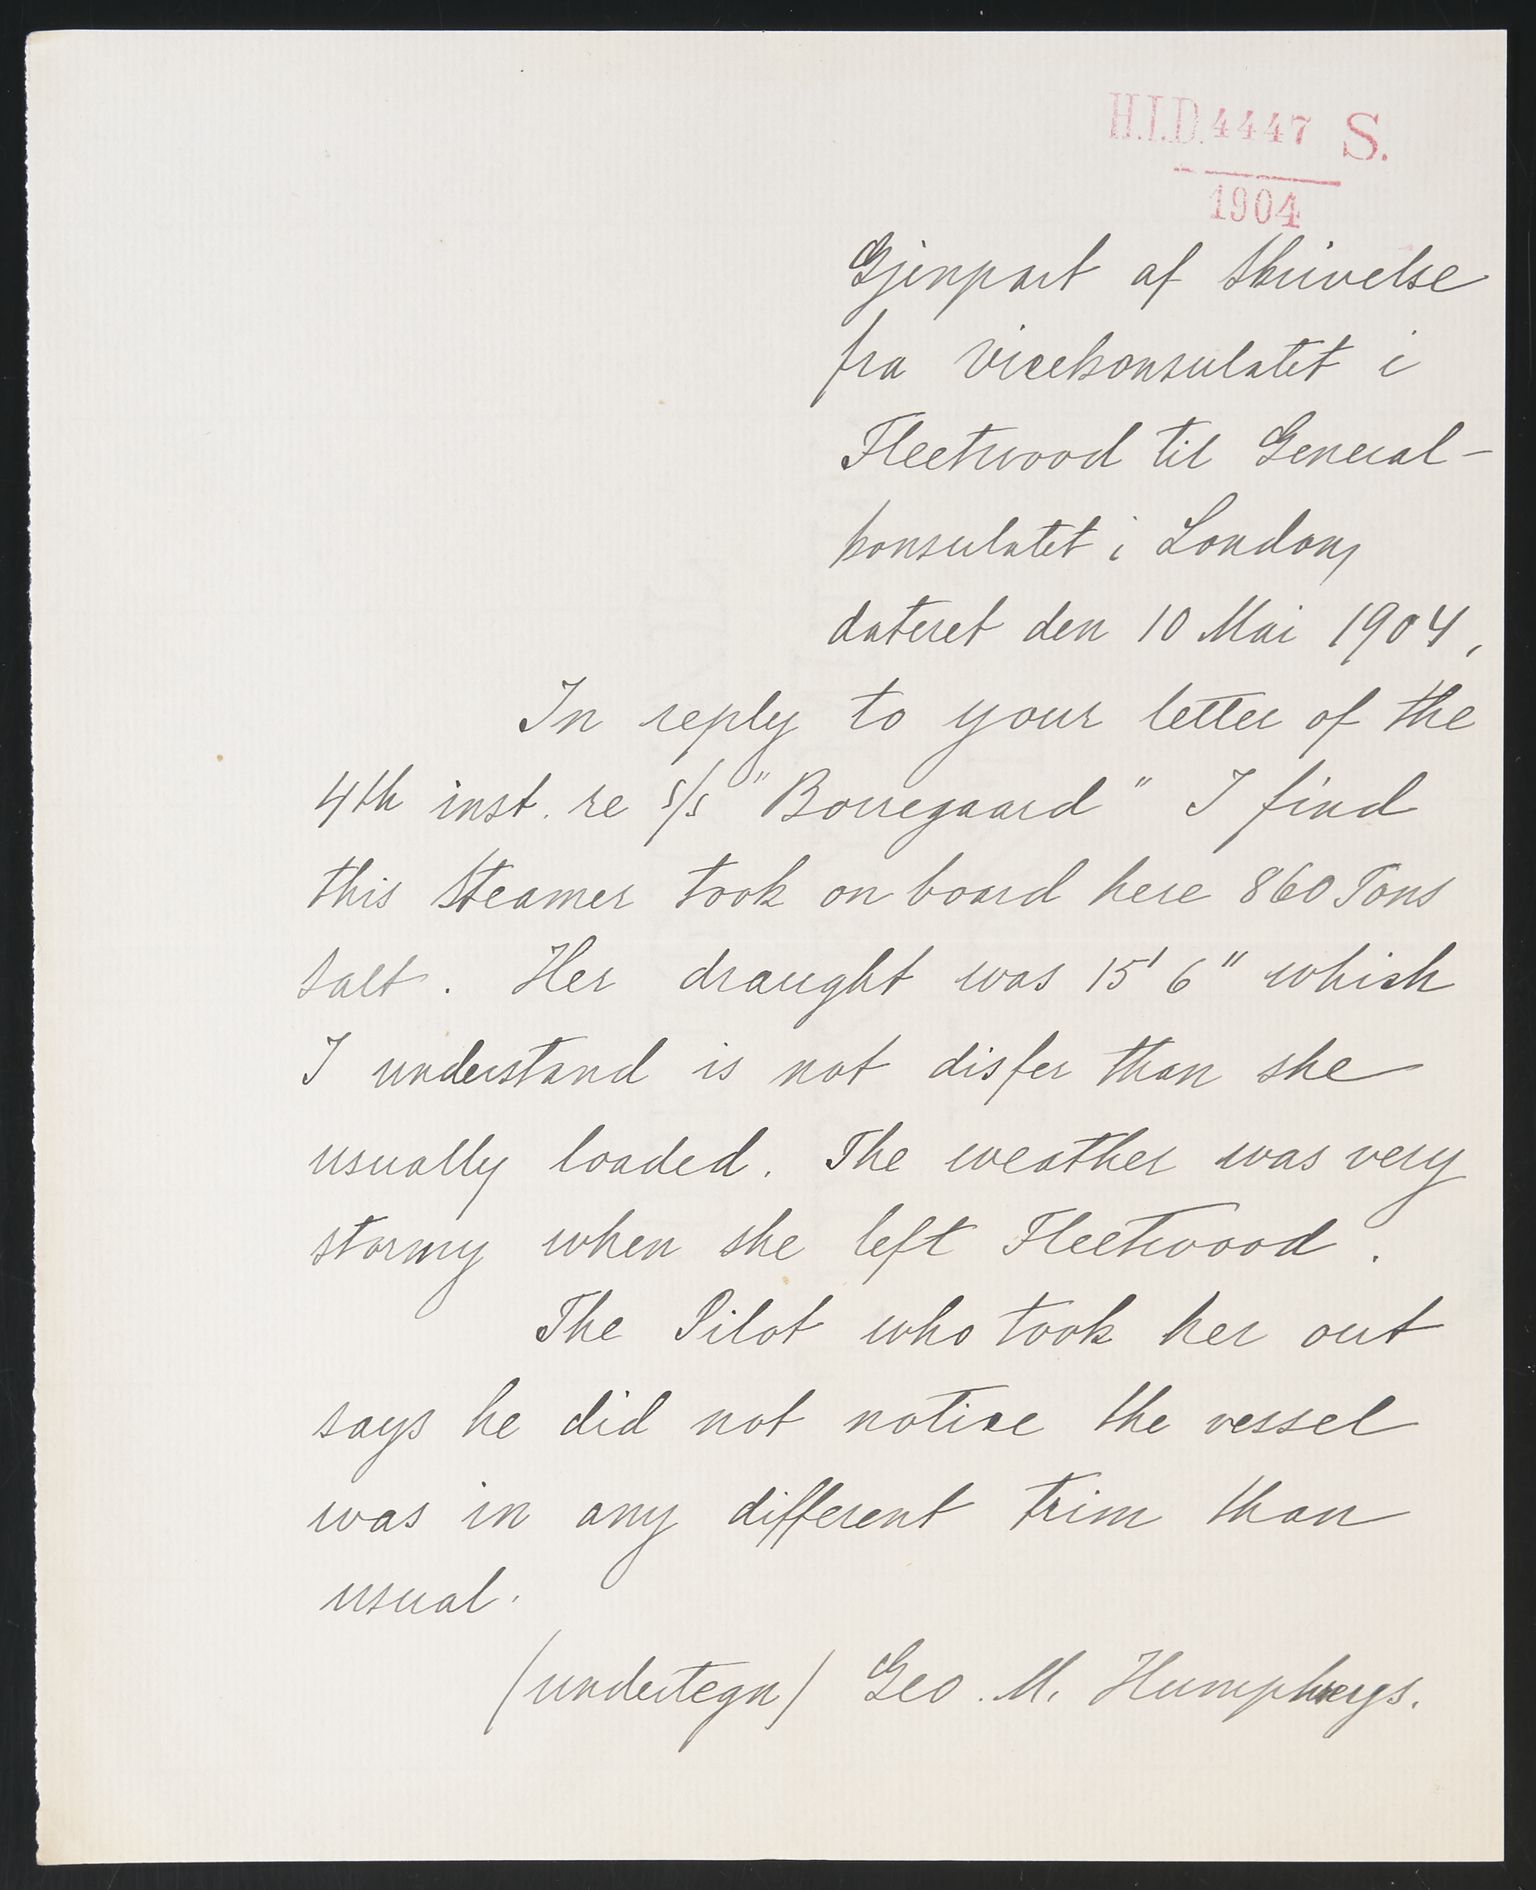 H.I.D. 4447 S.
1904
Gjenpart af Skrivelse
fra Vicekonsulatet i
Fleetwood til General-
konsulatet i London,
dateret den 10 Mai 1904,
In reply to your letter of the
4th inst. re s/s "Borregaard" I find
this Steamer took on board here 860 Tons
salt. Her draught was 15' 6" which
I understand is not disfer than she
usually loaded. The weather was very
stormy when she left Fleetwood.
The Pilot who took her out
says he did not notice the vessel
was in any different trim than
usual.
(undertegn) Geo. M. Humphreys.